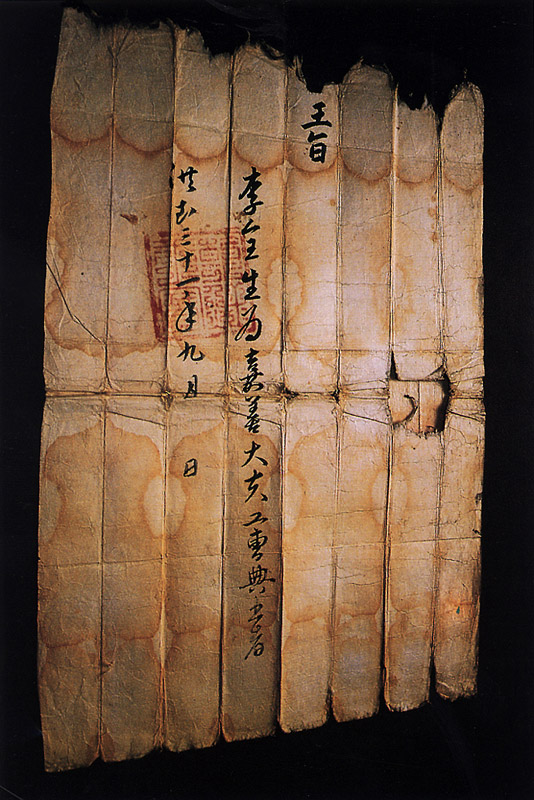 王旨
李全生爲嘉善大夫工曹典書者
洪武三十一年九月 日